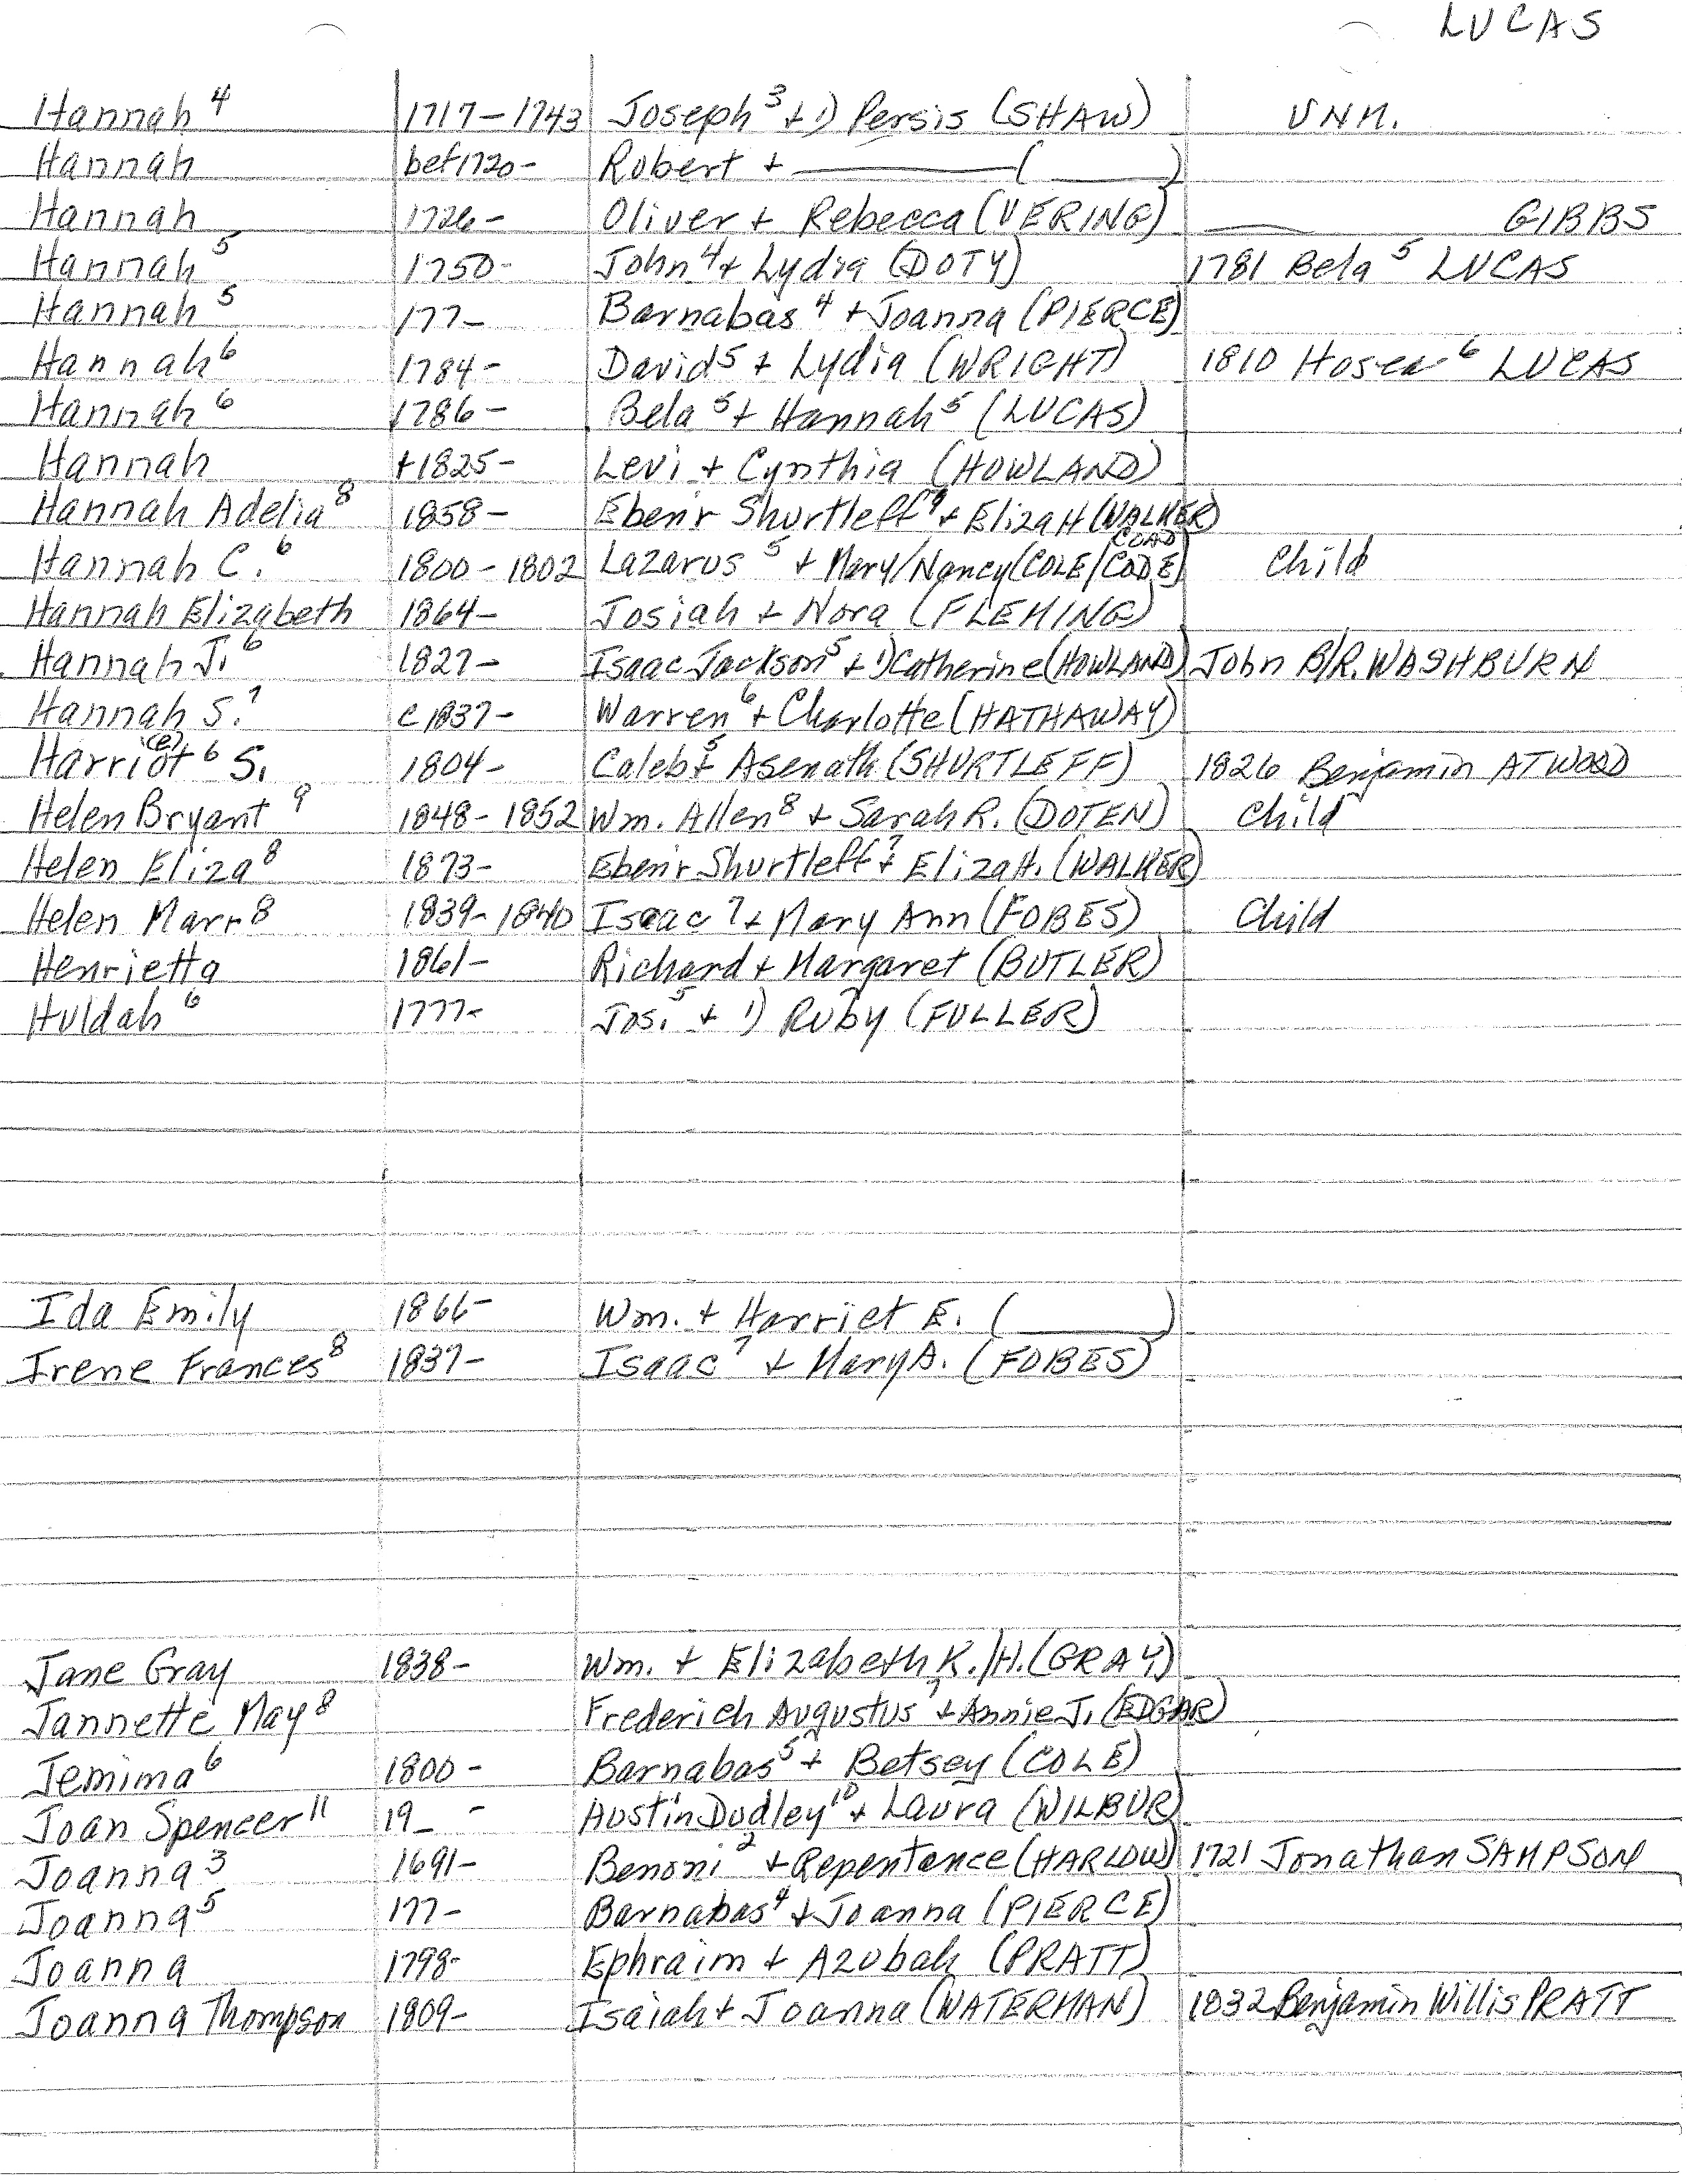 LUCAS
Hannah 4 1717-1743 Joseph 3 + 1) Persis (SHAW) UNM.
Hannah bef 1720- Robert + ______ ( ______ )
Hannah 1726- Oliver + Rebecca (VERING) ______ GIBBS
Hannah 5 1750- John 4 + Lydia (DOTY) 1781 Bela 5 LUCAS
Hannah 5 177- Barnabas 4 + Joanna (PIERCE)
Hannah 6 1784- David 5 + Lydia (WRIGHT) 1810 Hosea 6 LUCAS
Hannah 6 1786- Bela 5 + Hannah 5 (LUCAS)
Hannah +1825- Levi + Cynthia (HOWLAND)
Hannah Adelia 8 1858- Eben'r Shurtleff + Eliza H (WALKER)
Hannah C. 6 1800-1802 Lazarus 5 + Mary/Nancy (COLE/CODE) COAD Child
Hannah Elizabeth 1864- Josiah + Nora (FLEMING)
Hannah J. 6 1827- Isaac Jackson 5 + 1) Catherine (HOWLAND) John B/R. WASHBURN
Hannah S. 7 c 1837- Warren 6 + Charlotte (HATHAWAY)
Harriot (e) 6 S. 1804- Caleb 5 + Asenath (SHURTLEFF) 1826 Benjamin ATWOOD
Helen Bryant 9 1848-1852 Wm. Allen 8 + Sarah R. (DOTEN) Child
Helen Eliza 8 1873- Eben'r Shurtleff 7 + Eliza H. (WALKER)
Helen Marr 8 1839-1840 Isaac 7 + Mary Ann (FOBES) Child
Henrietta 1861- Richard + Margaret (BUTLER)
Huldah 6 1777- Jos. 5 + 1) Ruby (FULLER)
Ida Emily 1866- Wm. + Harriet E. ( ______ )
Irene Frances 8 1837- Isaac 7 + Mary A. (FOBES)
Jane Gray 1838- Wm. + Elizabeth K./H. (GRAY)
Jannette May 8 Frederich Augustus 7 + Annie J. (EDGAR)
Jemima 6 1800- Barnabas 5 + Betsey (COLE)
Joan Spencer 11 19_ - Austin Dudley 10 + Laura (WILBUR)
Joanna 3 1691- Benoni 2 + Repentance (HARLOW) 1721 Jonathan SAMPSON
Joanna 5 177- Barnabas 4 + Joanna (PIERCE)
Joanna 1798- Ephraim + Azubah (PRATT)
Joanna Thompson 1809- Isaiah + Joanna (WATERMAN) 1832 Benjamin Willis PRATT